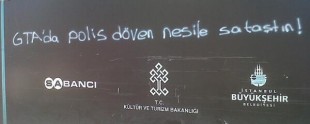 GTA'da polis döven nesile sataştın!
SABANCI
T.C.
KÜLTÜR VE TURİZM BAKANLIĞI
İSTANBUL
BÜYÜKŞEHİR
BELEDİYESİ